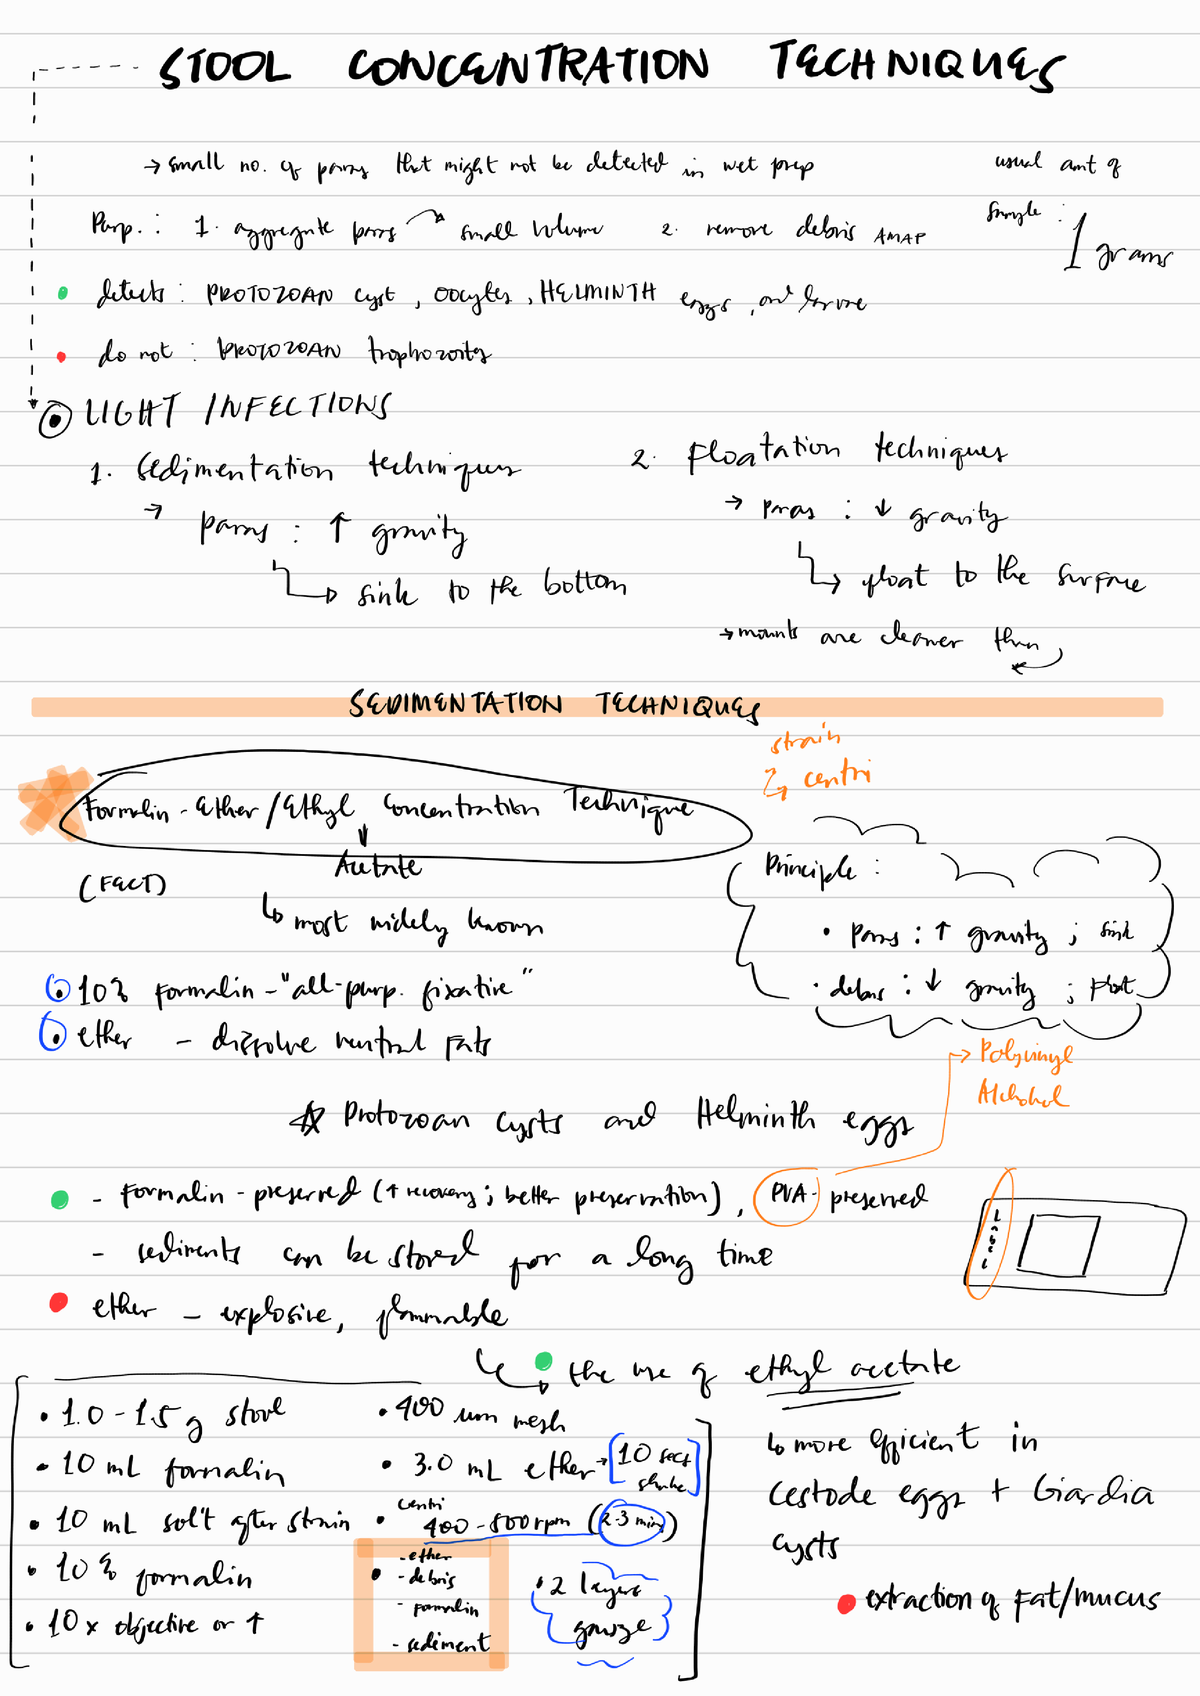 STOOL CONCENTRATION TECHNIQUES
→ small no. of paras that might not be detected in wet prep
usual amt of
sample : 1 grams
Purp. : 1. aggregate paras → small volume 2. remove debris AMAP
• detects : PROTOZOAN cyst, oocytes, HELMINTH eggs, and larvae
• do not : PROTOZOAN trophozoites
LIGHT INFECTIONS
1. Sedimentation techniques
→ paras : ↑ gravity
↳ sink to the bottom
2. Floatation techniques
→ paras : ↓ gravity
↳ float to the surface
→ mounts are cleaner than
SEDIMENTATION TECHNIQUES
strain
↳ centri
Formalin - Ether / Ethyl Concentration Technique
↓
Acetate
(FECT)
↳ most widely known
Principle :
• paras : ↑ gravity ; sink
• debris : ↓ gravity ; float
10% formalin - "all-purp. fixative"
ether - dissolve neutral fats
→ Polyvinyl
Alchohol
☆ Protozoan cysts and Helminth eggs
• - Formalin - preserved (↑ recovery ; better preservation), PVA - preserved
- sediments can be stored for a long time
Label
• ether - explosive, flammable
↳ • the use of ethyl acetate
↳ more efficient in
cestode eggs + Giardia
cysts
• extraction of fat/mucus
• 1.0 - 1.5 g stool
• 10 mL formalin
• 10 mL sol't after strain
• 10% formalin
• 10x objective or ↑
• 400 um mesh
• 3.0 mL ether → [10 secs shake]
• centri
400 - 500 rpm (2-3 mins)
• - ether
- debris
- formalin
- sediment
• 2 layers
gauze